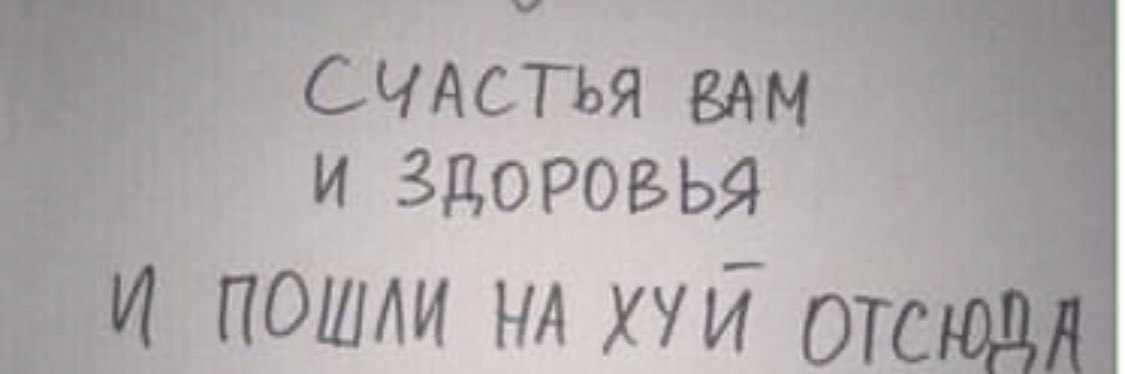 СЧАСТЬЯ ВАМ
И ЗДОРОВЬЯ
И ПОШЛИ НА ХУЙ ОТСЮДА